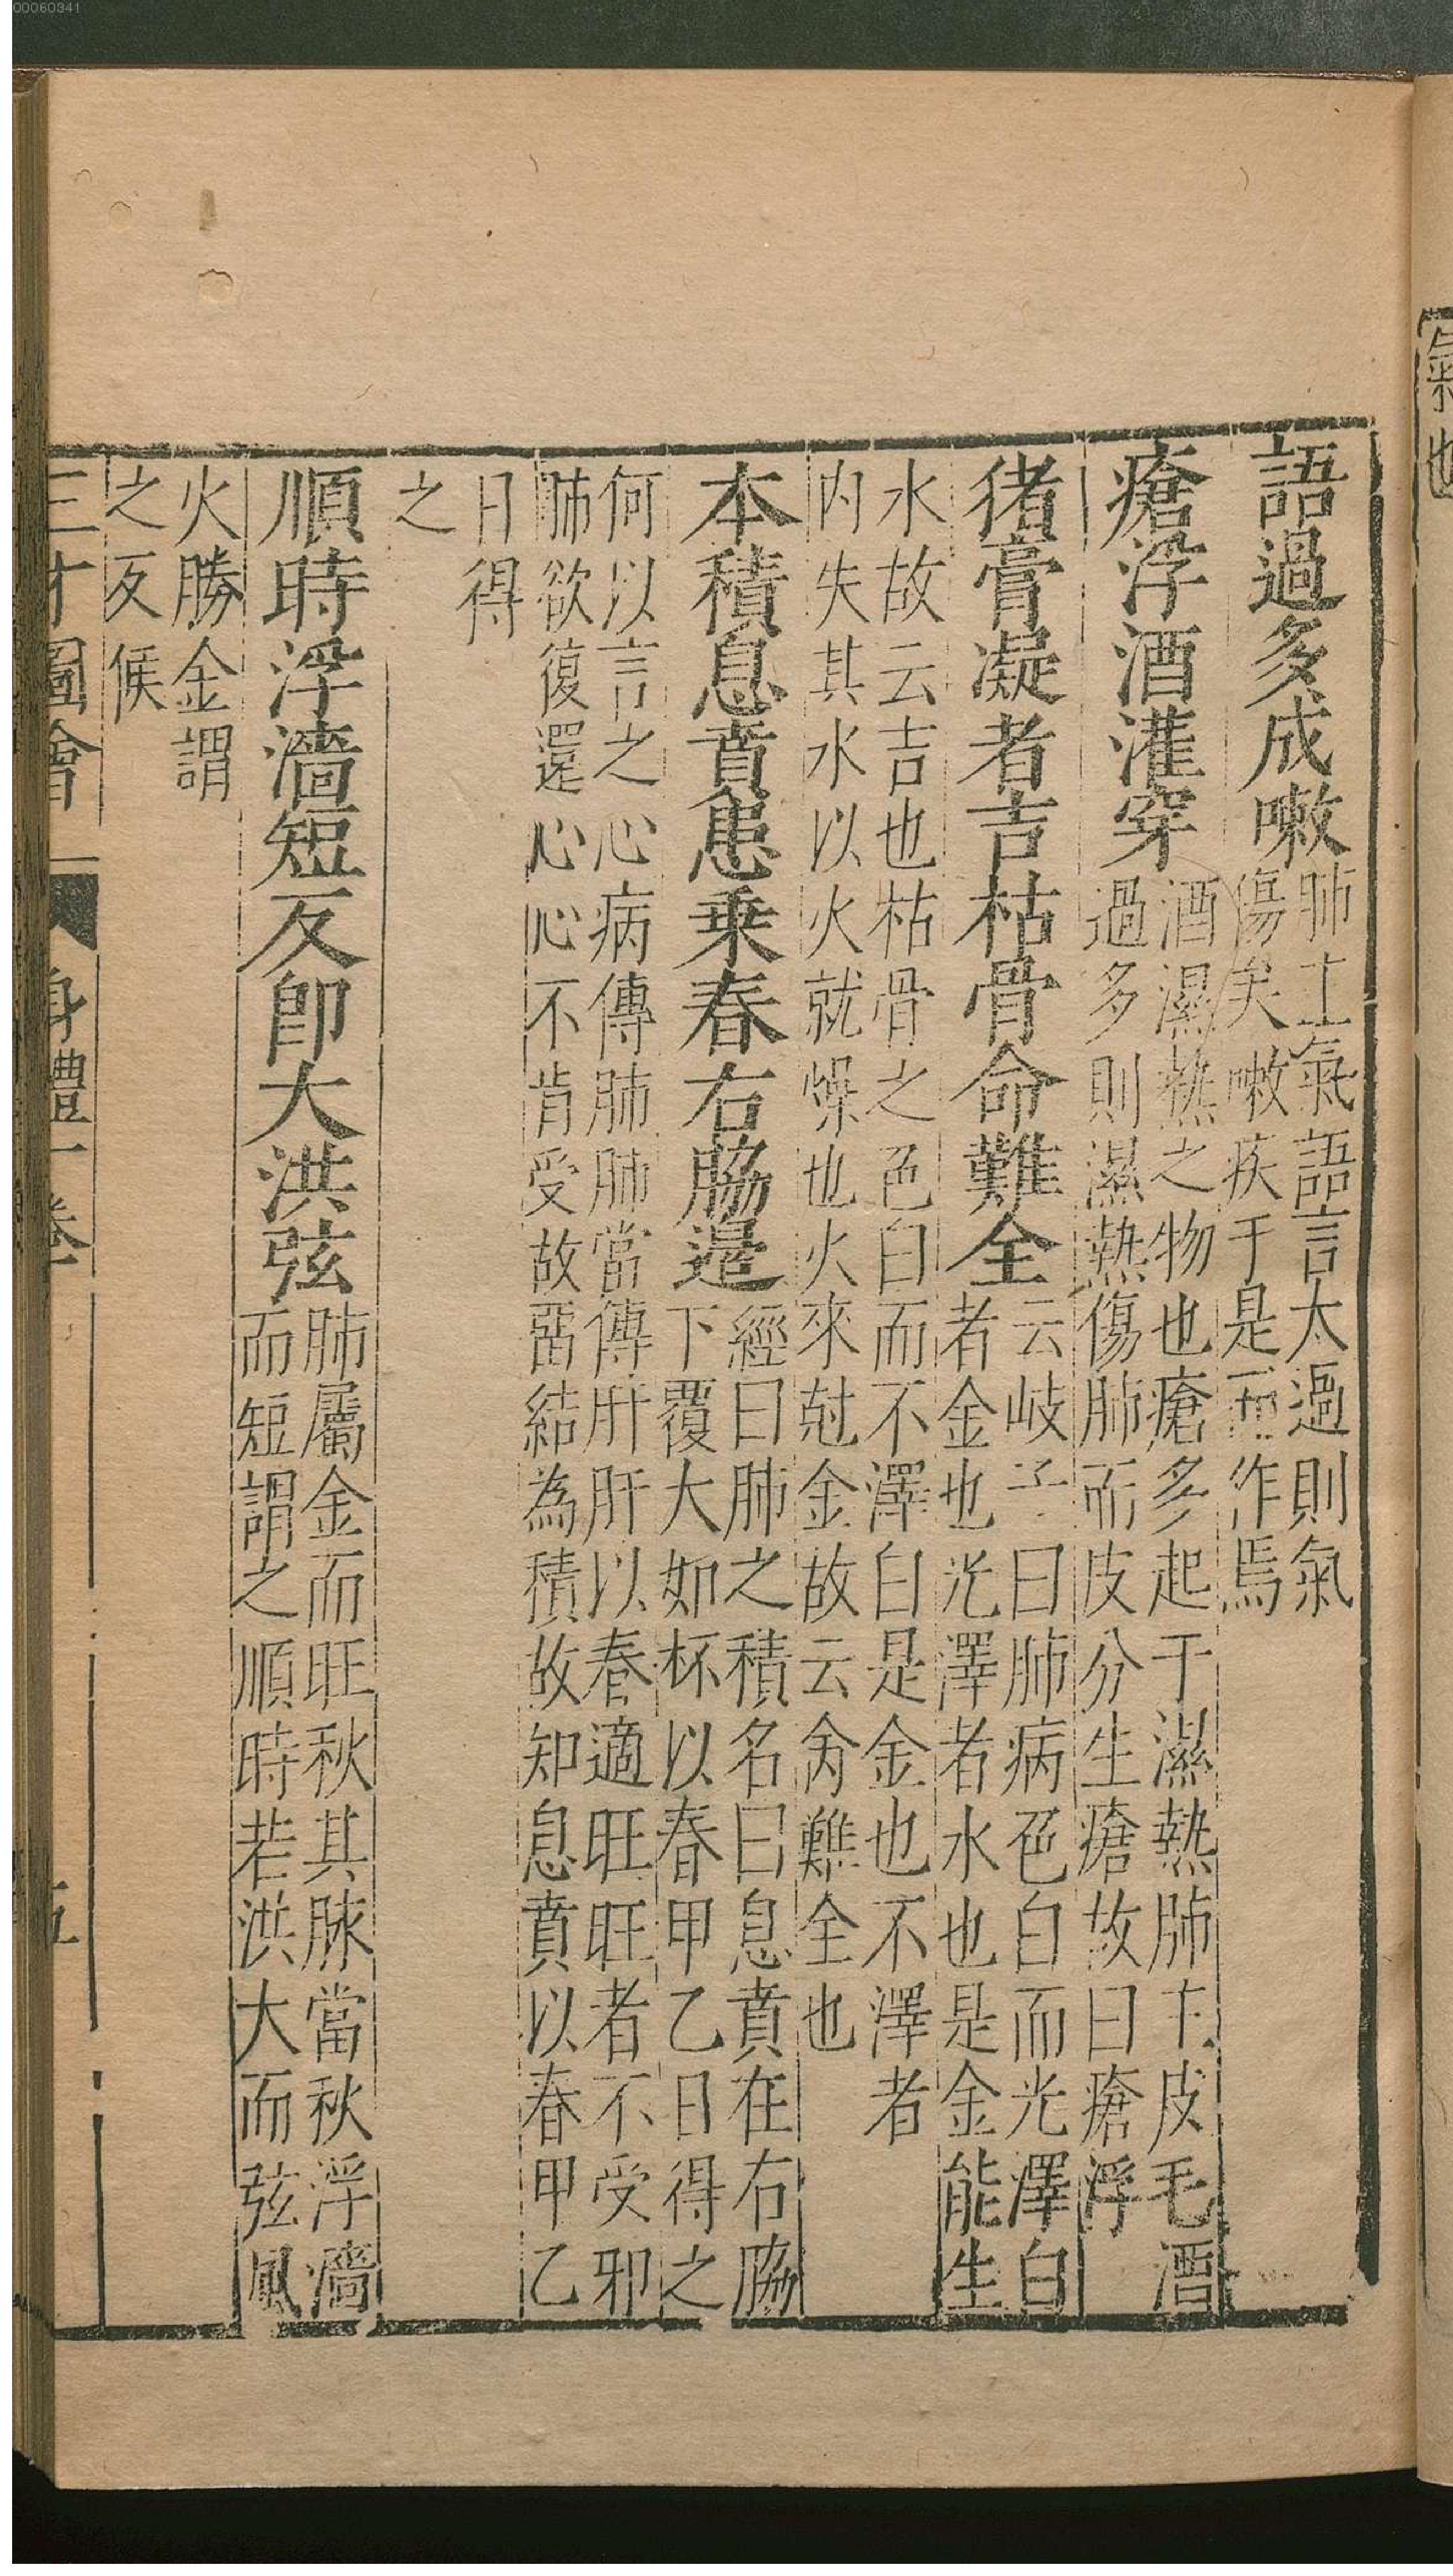 語過多成嗽
肺主氣語言太過則氣
傷矣嗽疾于是而作焉
瘡浮酒灌穿
酒濕熱之物也瘡多起于濕熱肺主皮毛酒
過多則濕熱傷肺而皮分生瘡故曰瘡浮
猪膏凝者吉枯骨命難全
云岐子曰肺病色白而光澤白
者金也光澤者水也是金能生
水故云吉也枯骨之色白而不澤白是金也不澤者
内失其水以火就燥也火來尅金故云命難全也
本積息賁患乗春右脇邉
經曰肺之積名曰息賁在右脇
下覆大如杯以春甲乙日得之
何以言之心病傳肺肺當傳肝肝以春適旺旺者不受邪
肺欲復還心心不肯受故畱結為積故知息賁以春甲乙
日得
之
順時浮濇短反即大洪弦
肺屬金而旺秋其脉當秋浮濇
而短謂之順時若洪大而弦風
火勝金謂
之反候
三才圖會
身體一卷
五
氣也
00060341